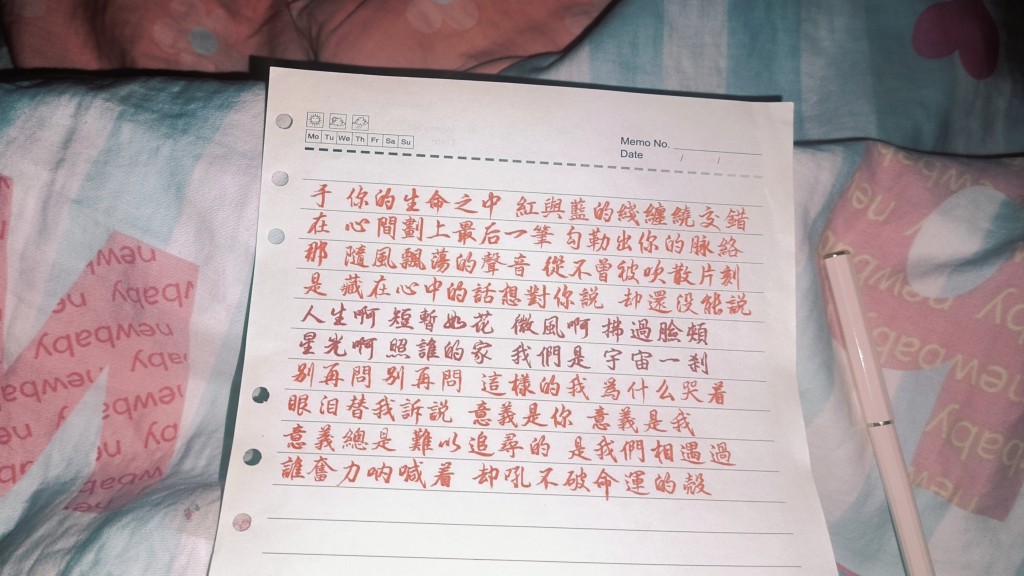 Mo Tu We Th Fr Sa Su
Memo No.
Date / /
于 你的生命之中 紅與藍的线纏繞交錯
在 心間劃上最后一筆 勾勒出你的脉絡
那 隨風飄荡的聲音 從不曾被吹散片刻
是 藏在心中的話想對你說 却還没能説
人生啊 短暫如花 微風啊 拂過臉頰
星光啊 照誰的家 我們是 宇宙一刹
别再問 别再問 這樣的我 為什么哭着
眼泪替我訴説 意義是你 意義是我
意義總是 難以追尋的 是我們相遇過
誰奮力呐喊着 却吼不破命運的殼
newbaby
newbaby
newbaby
newbaby
newbaby
newbaby